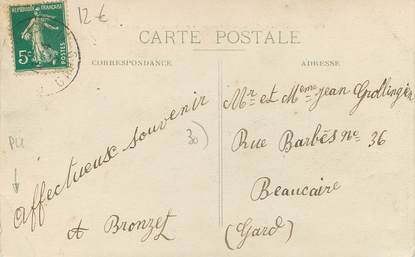 12 €
REPUBLIQUE FRANÇAISE
POSTES
5c
CARTE POSTALE
CORRESPONDANCE
ADRESSE
PLI
Affectueux souvenir
A Bronzet
30)
Mr et Mme Jean
Rue Barbès no 36
Beaucaire
(Gard)